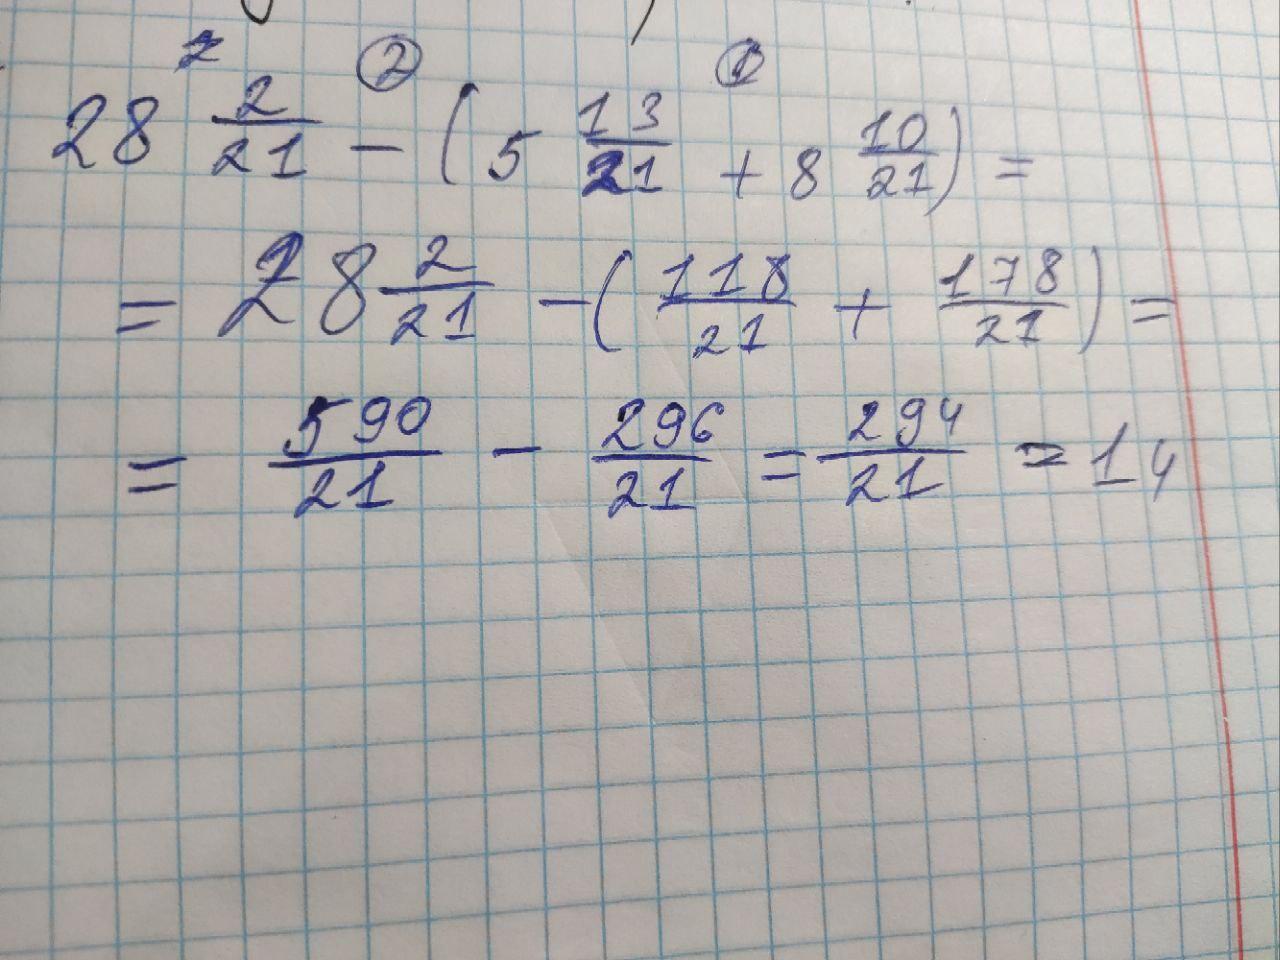 ② ①
28 2/21 - (5 13/21 + 8 10/21) =
= 28 2/21 - (118/21 + 178/21) =
= 590/21 - 296/21 = 294/21 = 14